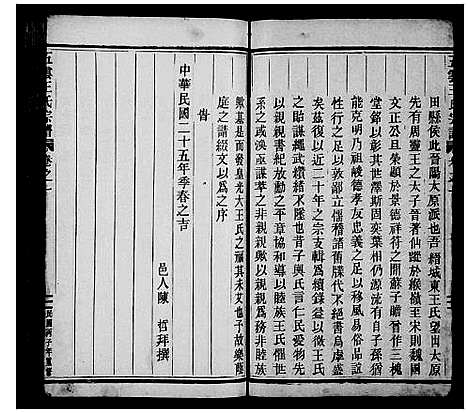 田縣侯此晉陽太原派也吾縉城東王氏望出太原
先有周靈王之太子晉著仙蹤於有宋則魏國
文正公旦榮顯於景德祥符之開蘇子瞻曾作三槐
堂銘以彰其世澤斯固奕葉相仍源流有自子孫猶
能克明乃祖峻德孝友忠義之足以移風易俗品詣
性行之足以敦鄙立懦稽諸舊牒代不絕書烏虖盛
矣茲復以近二十年之宗支輯爲續錄益以徵王氏
詒謀繩武纘緒不墜也昔子輿氏言仁民愛物先
以親親書紀放勳之平章協和導以睦族王氏僅世
系之或渙亟謀萃之非親親歟以親親爲務非睦族
歟基是而發皇光大王氏之興其未艾也予故樂蔭
庭之請綴文以爲之序
旹
中華民國二十五年季春之吉
邑人陳 哲拜撰
五雲王氏宗譜
卷之一
民國丙子年重修